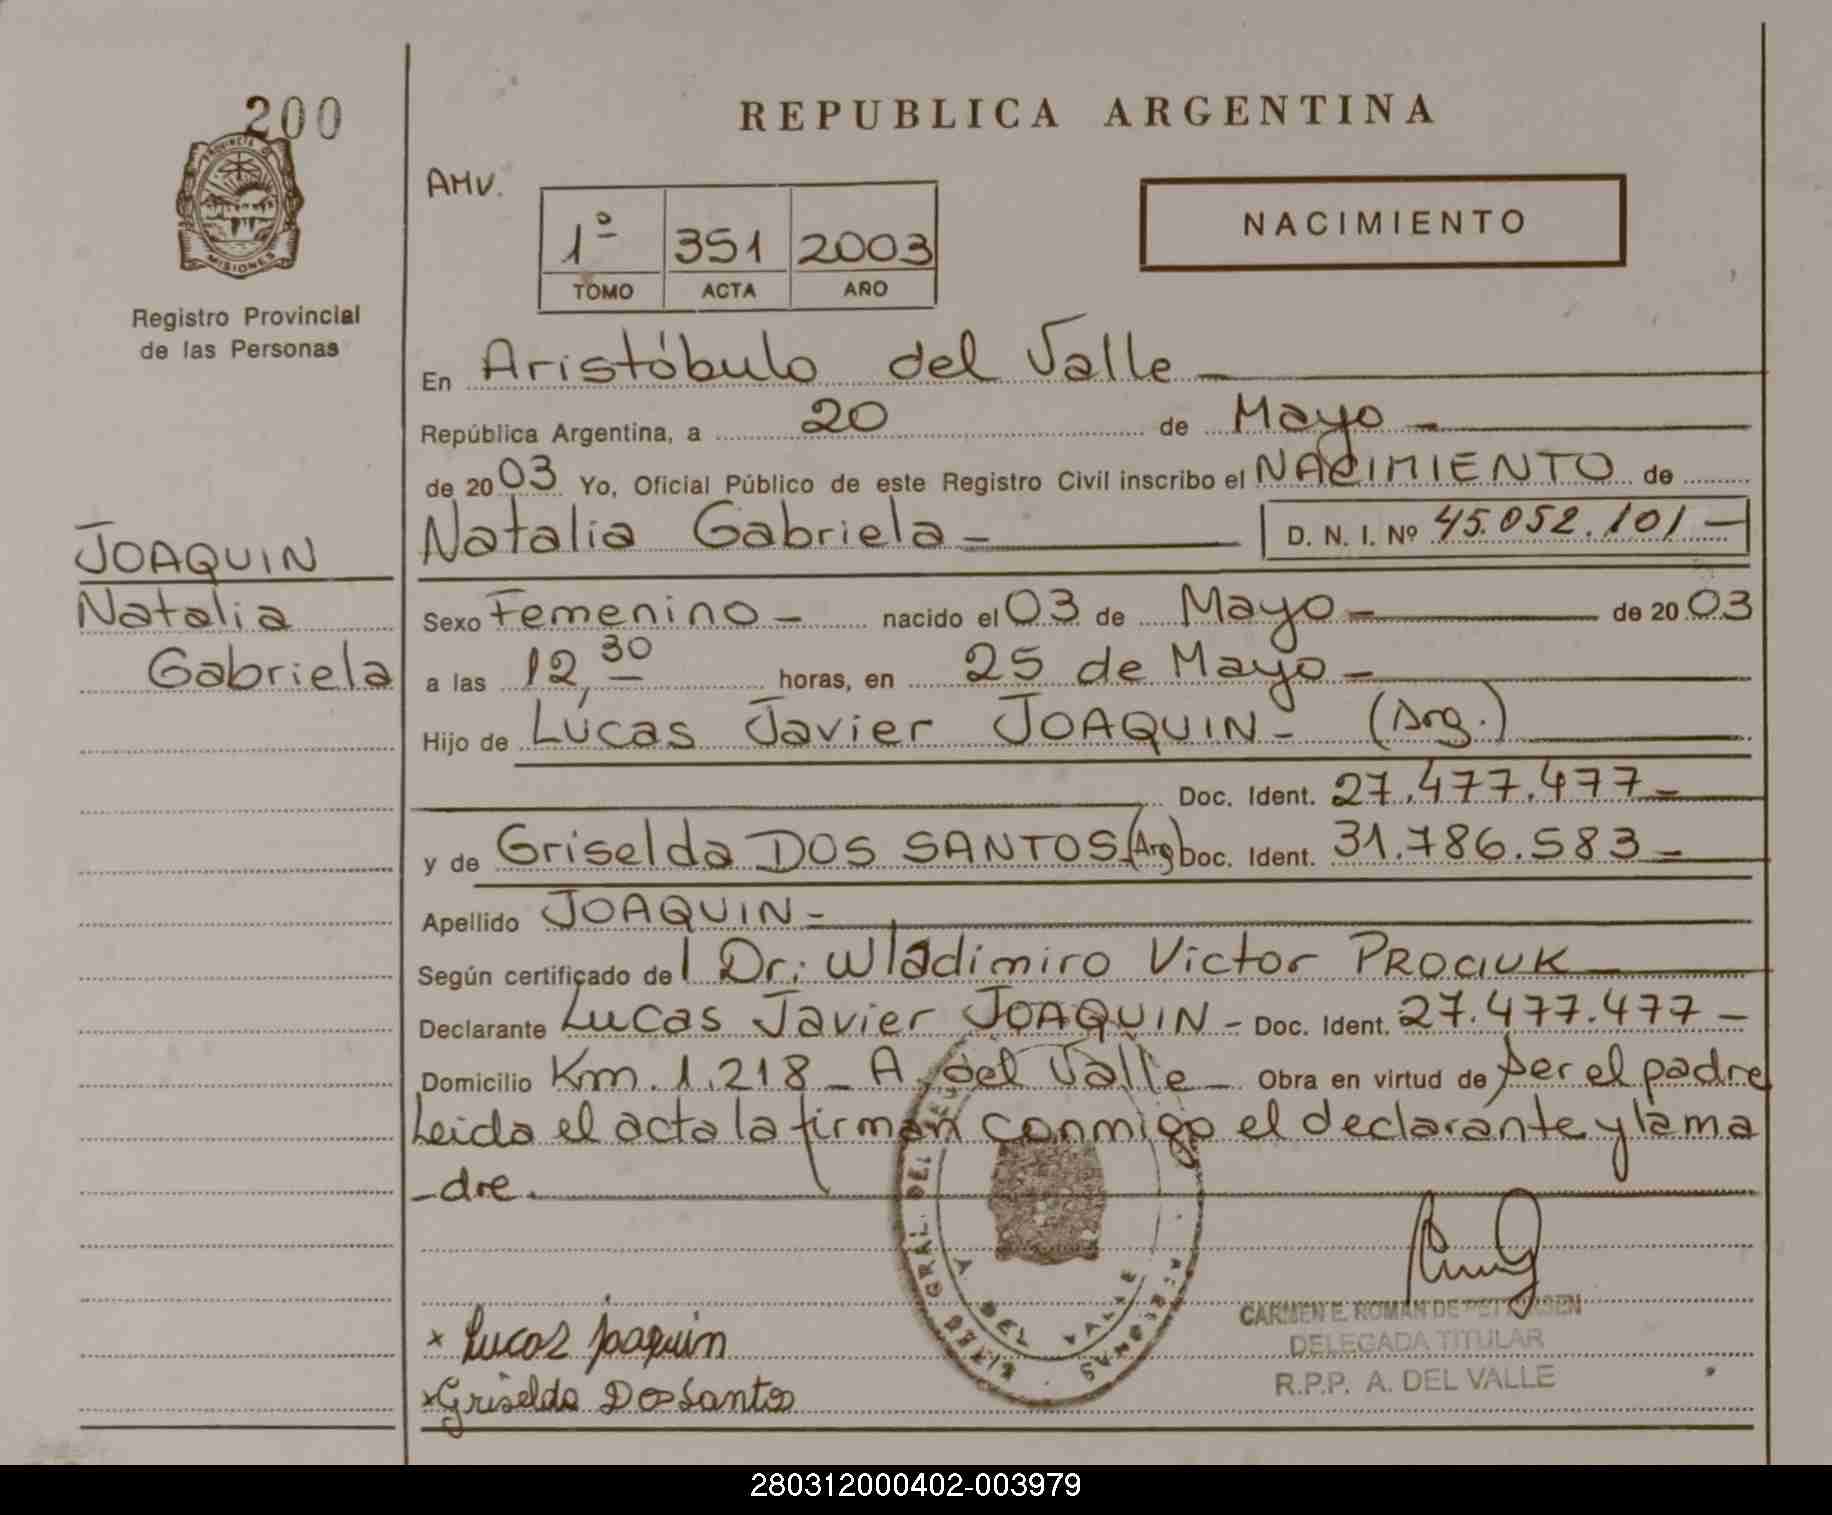 200
REPUBLICA ARGENTINA
PROVINCIA D
MISIONES
Registro Provincial
de las Personas
AMV.
1º 351 2003
TOMO ACTA AÑO
NACIMIENTO
En Aristóbulo del Valle
República Argentina, a 20 de Mayo
de 2003 Yo, Oficial Público de este Registro Civil inscribo el NACIMIENTO de
Natalia Gabriela D. N. I. Nº 45.052.101
JOAQUIN
Natalia
Gabriela
Sexo Femenino nacido el 03 de Mayo de 2003
a las 12,30 horas, en 25 de Mayo
Hijo de Lucas Javier JOAQUIN (Arg.)
Doc. Ident. 27.477.477
y de Griselda DOS SANTOS (Arg) Doc. Ident. 31.786.583
Apellido JOAQUIN
Según certificado del Dr. Wladimiro Victor PROCIUK
Declarante Lucas Javier JOAQUIN Doc. Ident. 27.477.477
Domicilio Km. 1.218 - A. del Valle Obra en virtud de ser el padre
Leida el acta la firman conmigo el declarante y la ma
-dre
GRAL. DE
DEL VALLE
CARMEN E. ROMAN DE
DELEGADA TITULAR
R.P.P. A. DEL VALLE
x Lucas joaquin
x Griselda Dos Santos
280312000402-003979